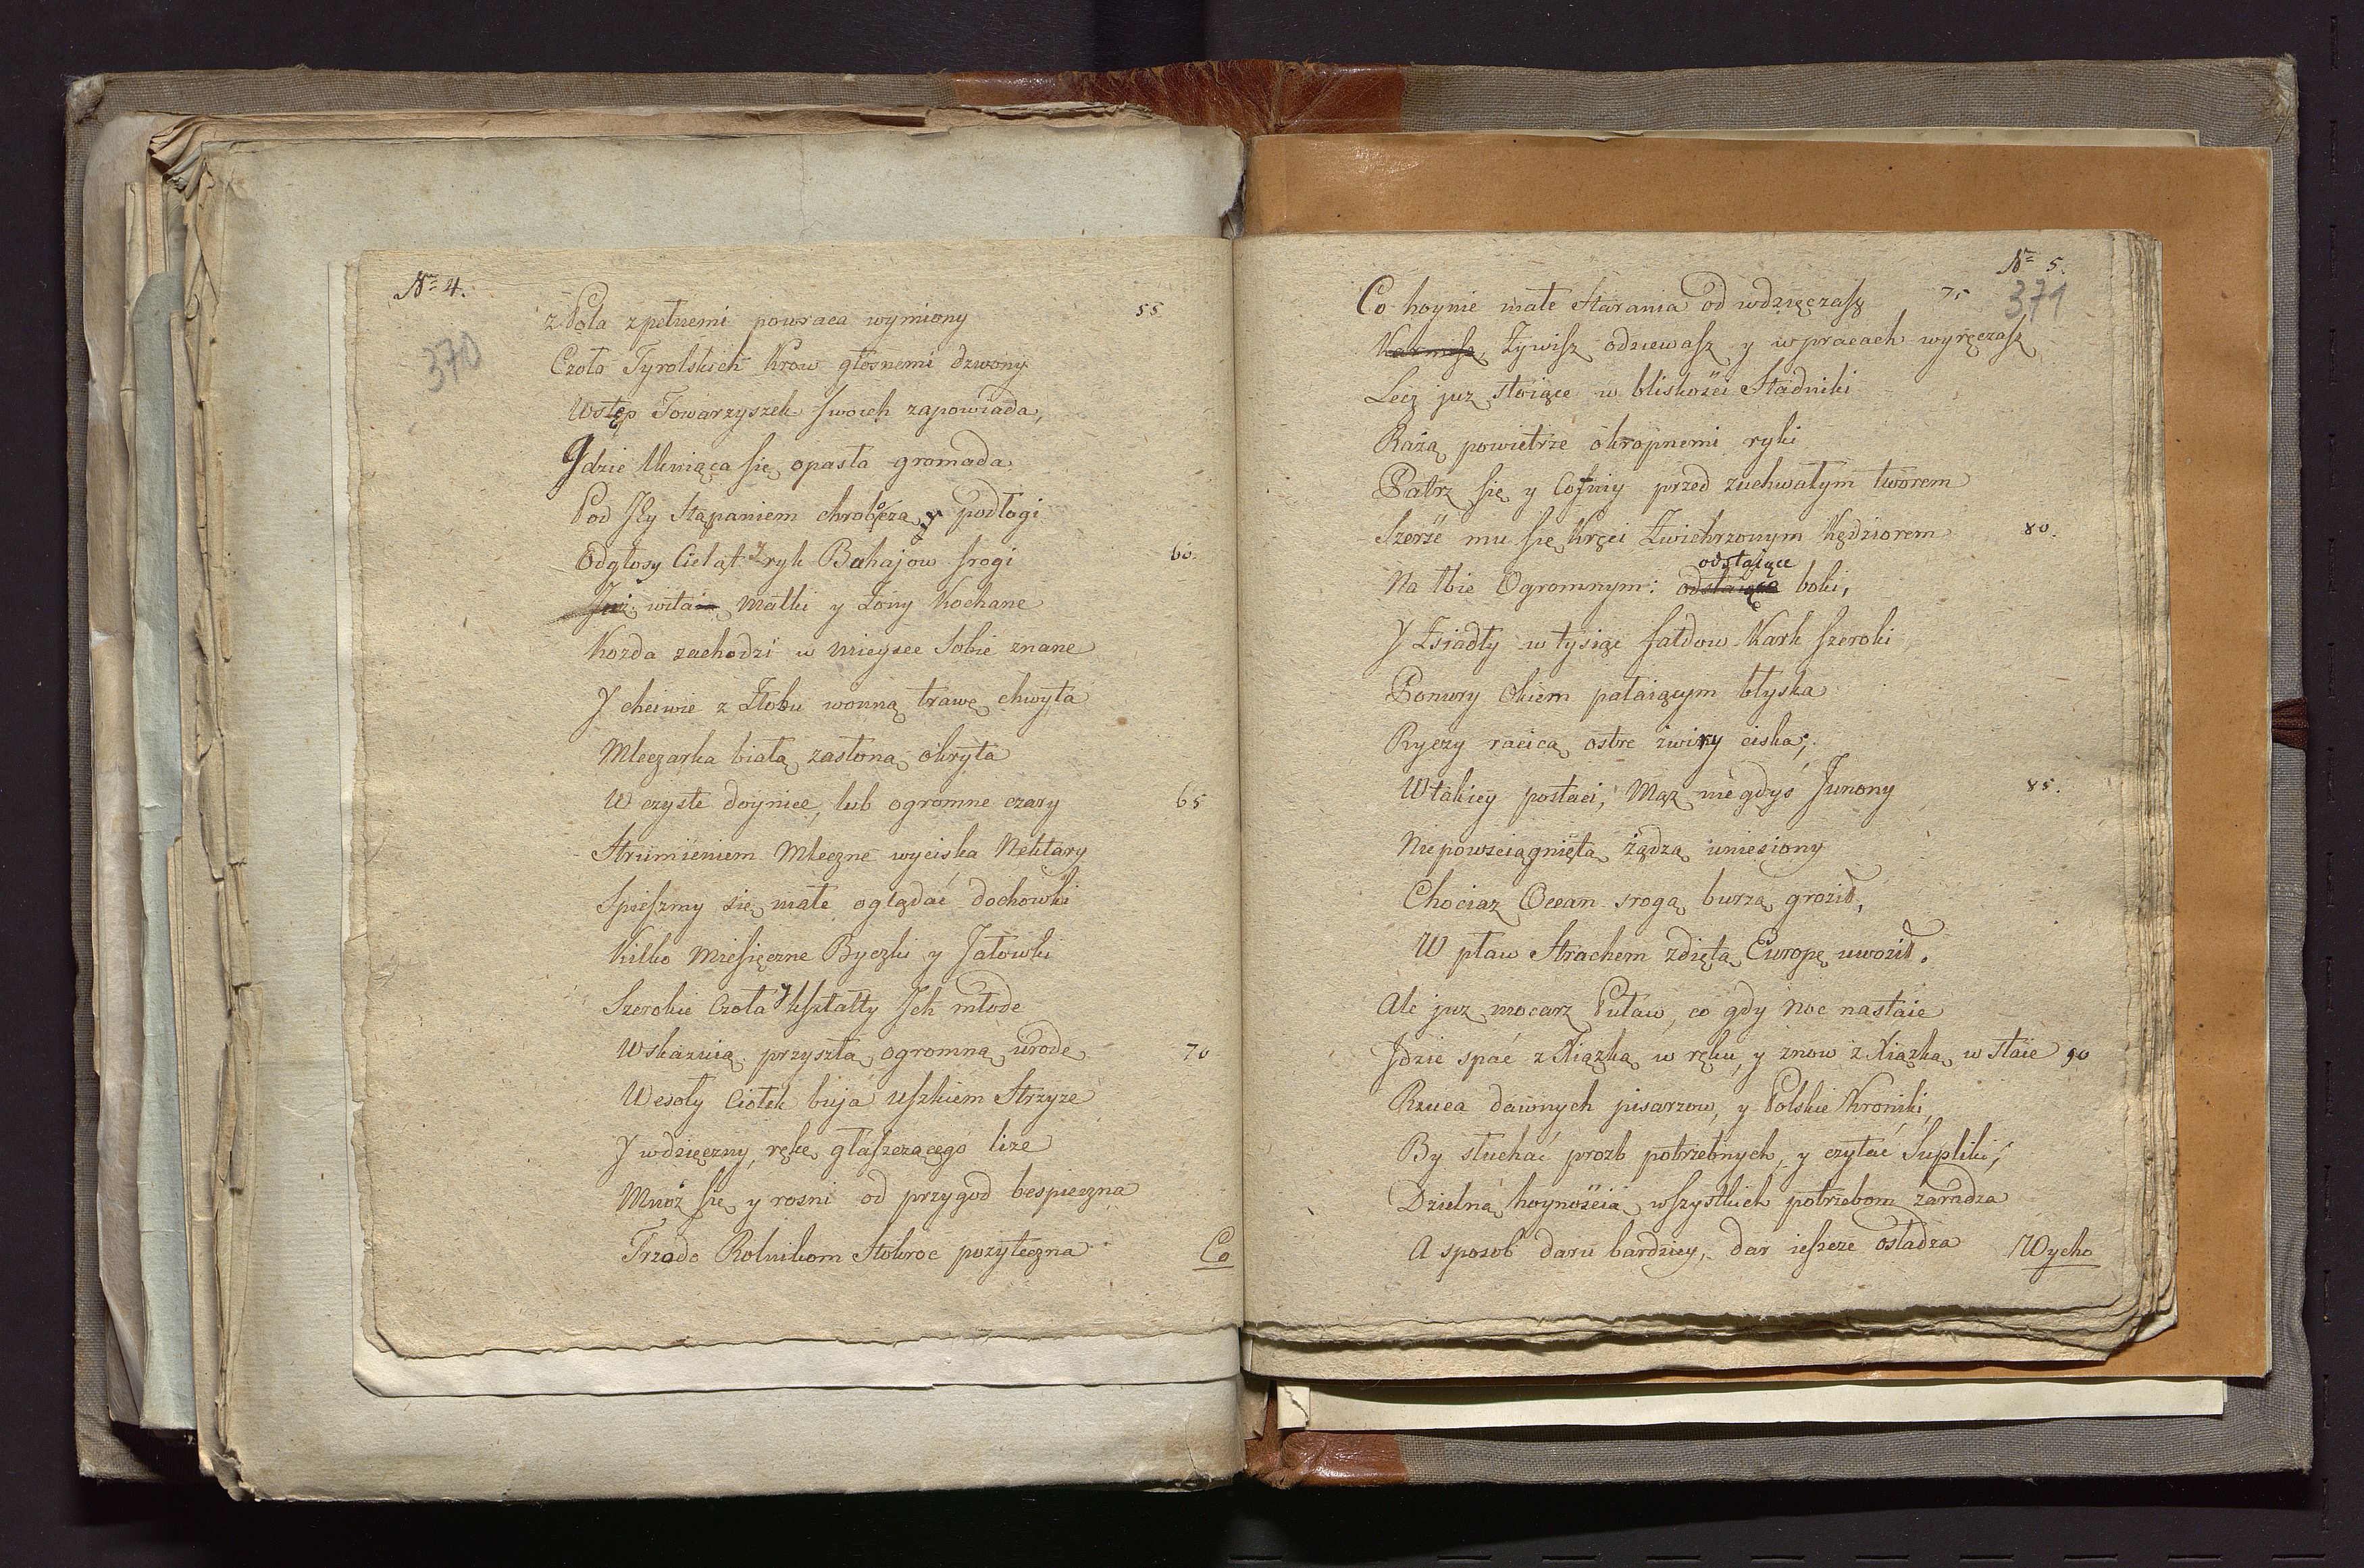 Nr 4.
370
z Pola zpełnemi powraca wymiony 55
Czoło Tyrolskich Krow głosnemi dzwony
Wstęp Towarzyszek swoich zapowiada,
Idzie lkniąca się opasła gromada
Pod Jey stąpaniem chrobocza podłogi
Odgłosy Cieląt ryk Buhajow srogi 60.
wita Matki y Żony Kochane
Kozda zachodzi w mieysce Sobie znane
Y chciwie z Żłobu wonną trawę chwyta
Mleczarka białą zasłoną okryta
W czyste doynice, lub ogromne czary 65
Strumieniem Mleczne wyciska Nektary
Spieszmy się małe oglądać dochowki
Kilko Miesięczne Byczki y Jałowki
Szerokie Czoła y kształty Jch młode
Wskazuią przyszłą ogromną urodę 70
Wesoły Ciołek buja uszkiem Strzyze
Y wdzięczny rękę głaszczącego liże
Mnoż się y rosni od przygod bespieczna
Trzodo Rolnikom Stokroc pozyteczna
Co
Nr 5.
371
Co hoynie małe Starania od wdzięczasz 75
Karmisz, Żywisz odziewasz y w pracach wyręczasz
Lecz juz stoiące w bliskości Stadniki
Rażą powietrze okropnemi ryki
Patrz się y Cofniy przed zuchwałym tworem
Szerść mu się kręci Zwichrzonym Kędziorem 80.
odstaiące
Na łbie Ogromnym: odstaiąca boki,
Y Zsiadły w tysiąc fałdow Kark szeroki
Ponury Okiem pałaiącym błyska
Ryczy racicą ostre żwiry ciska;
W takiey postaci, Mąż niegdyś Junony 85.
Niepowsciągniętą żądzą uniesiony
Chociaz Ocean srogą burzą groził,
W pław Strachem zdiętą Europę uwoził.
Ale juz mocarz Puław, co gdy noc nastaie
Jdzie spać z Xiązką w ręku, y znow z Xiązką w staie 90
Rzuca dawnych pisarzow, y Polskie Kroniki,
By słuchać prozb potrzebnych, y czytać Supliki;
Dzielną hoynością wszystkich potrzebom zaradza
A sposob daru bardziey, dar ieszcze osładza
Wycho